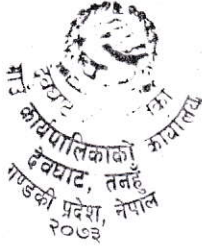 देवघाट
गाउँ कार्यपालिकाको कार्यालय
देवघाट, तनहुँ
गण्डकी प्रदेश, नेपाल
२०७३